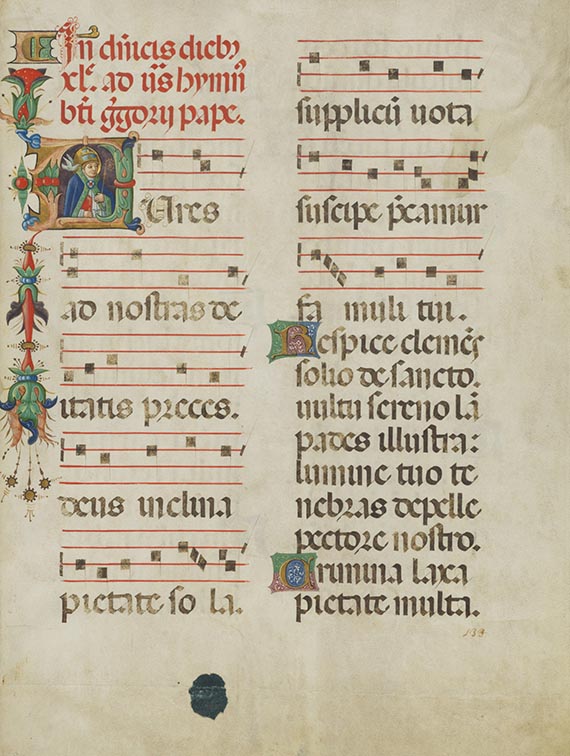 In dn̄icis diebꝫ
xl᷑. ad ūs hymnū
bt̄i gḡorij pape.
Aures
ad nostras de
itatis preces.
deus inclina
pietate so la.
supplicū uota
suscipe p̄camur
fa muli tui.
Respice clemēs
solio de sancto.
uultu sereno lā
pades illustra:
lumine tuo te
nebras depelle
pectore nostro.
Crimina laxa
pietate multa.
133